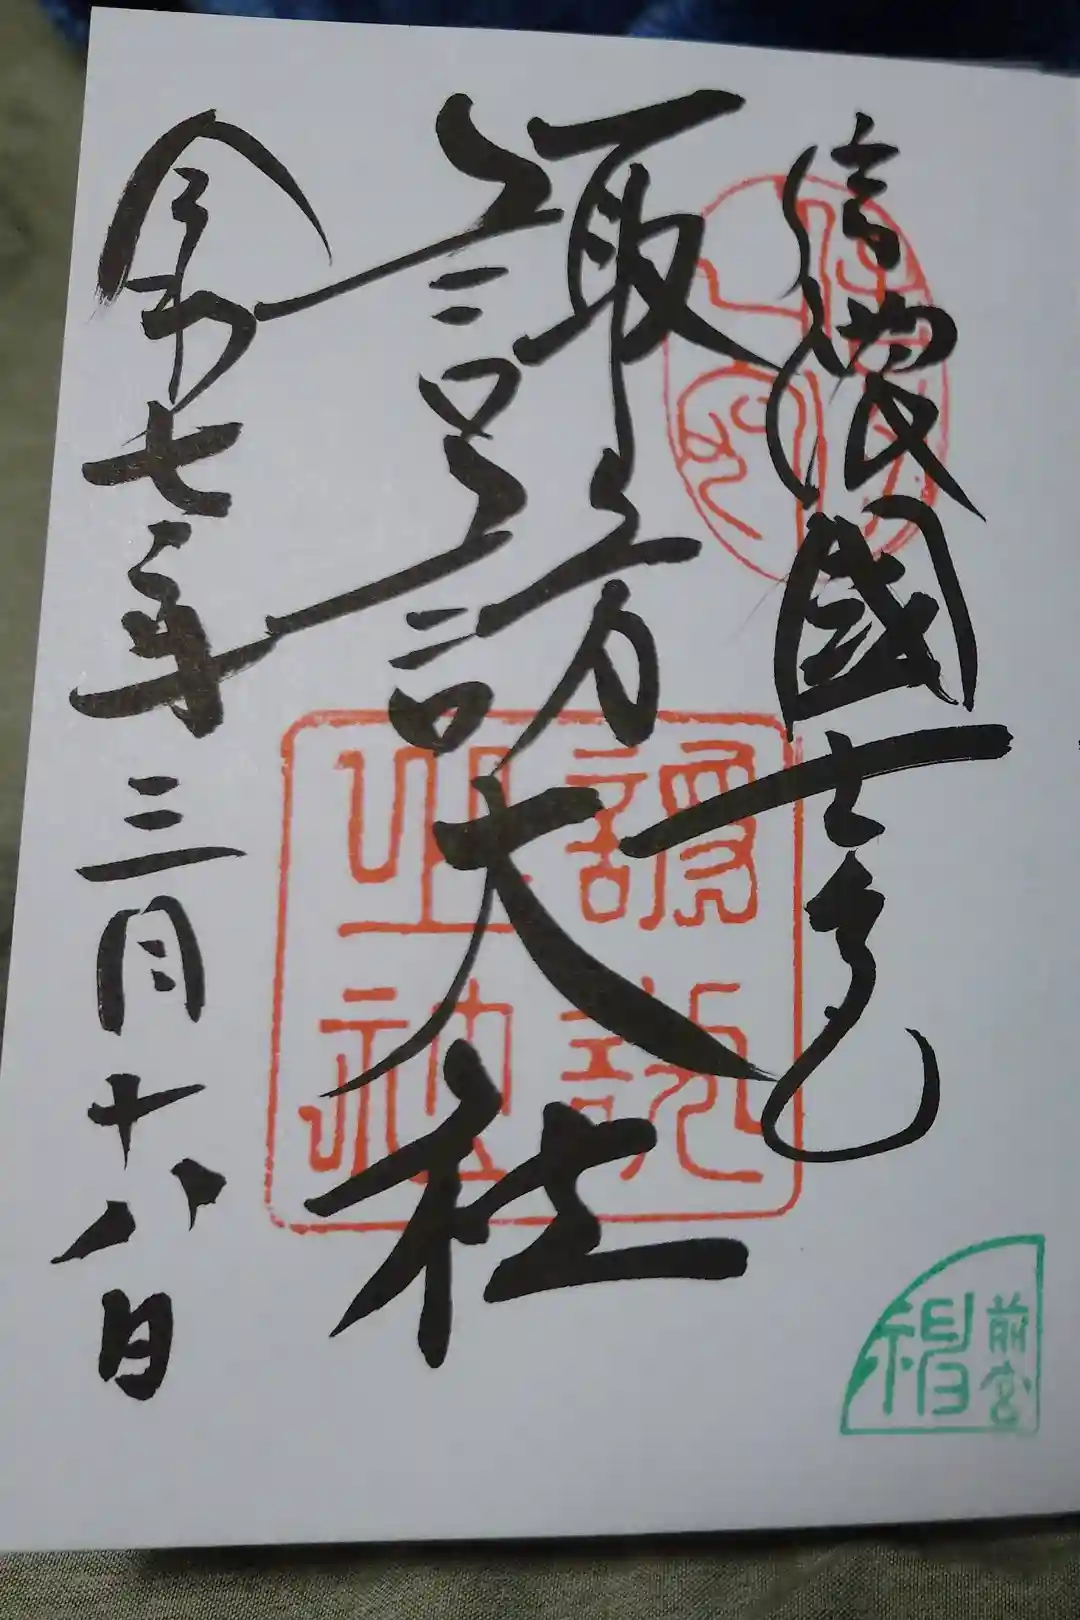 信濃國一之宮
諏訪大社
令和七年三月十八日
前宮